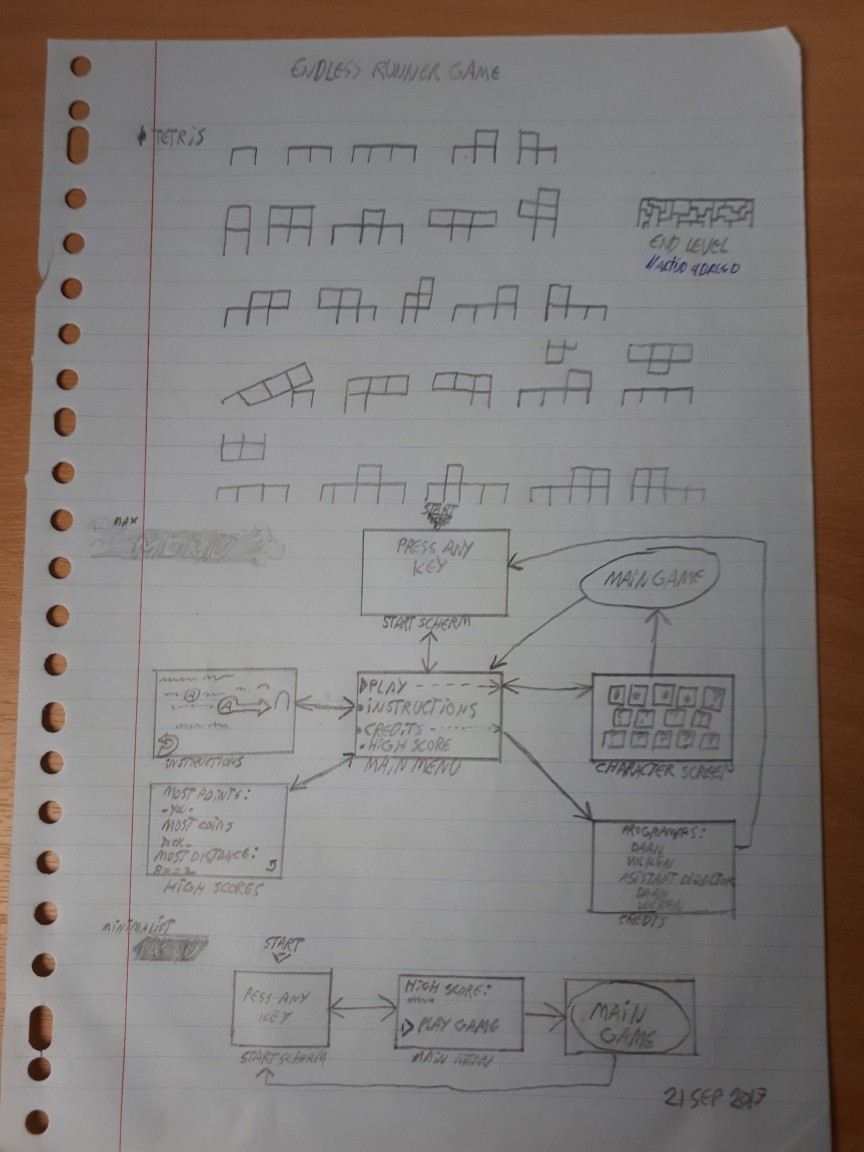 ENDLESS RUNNER GAME
TETRIS
END LEVEL
START
MAX
MENU
PRESS ANY
KEY
START SCHERM
MAIN GAME
PLAY
INSTRUCTIONS
CREDITS
HIGH SCORE
MAIN MENU
A
A
INSTRUCTIONS
CHARACTER SCREEN
MOST POINTS:
MOST COINS
MOST DISTANCE:
HIGH SCORES
PROGRAMERS:
DAAN
VOLKEN
ASISTANT DIRECTOR
DAAN
VOLKEN
CREDITS
MINIMALIST
START
PESS ANY
KEY
START SCHERM
HIGH SCORE:
PLAY GAME
MAIN
MAIN
GAME
21 SEP 2017